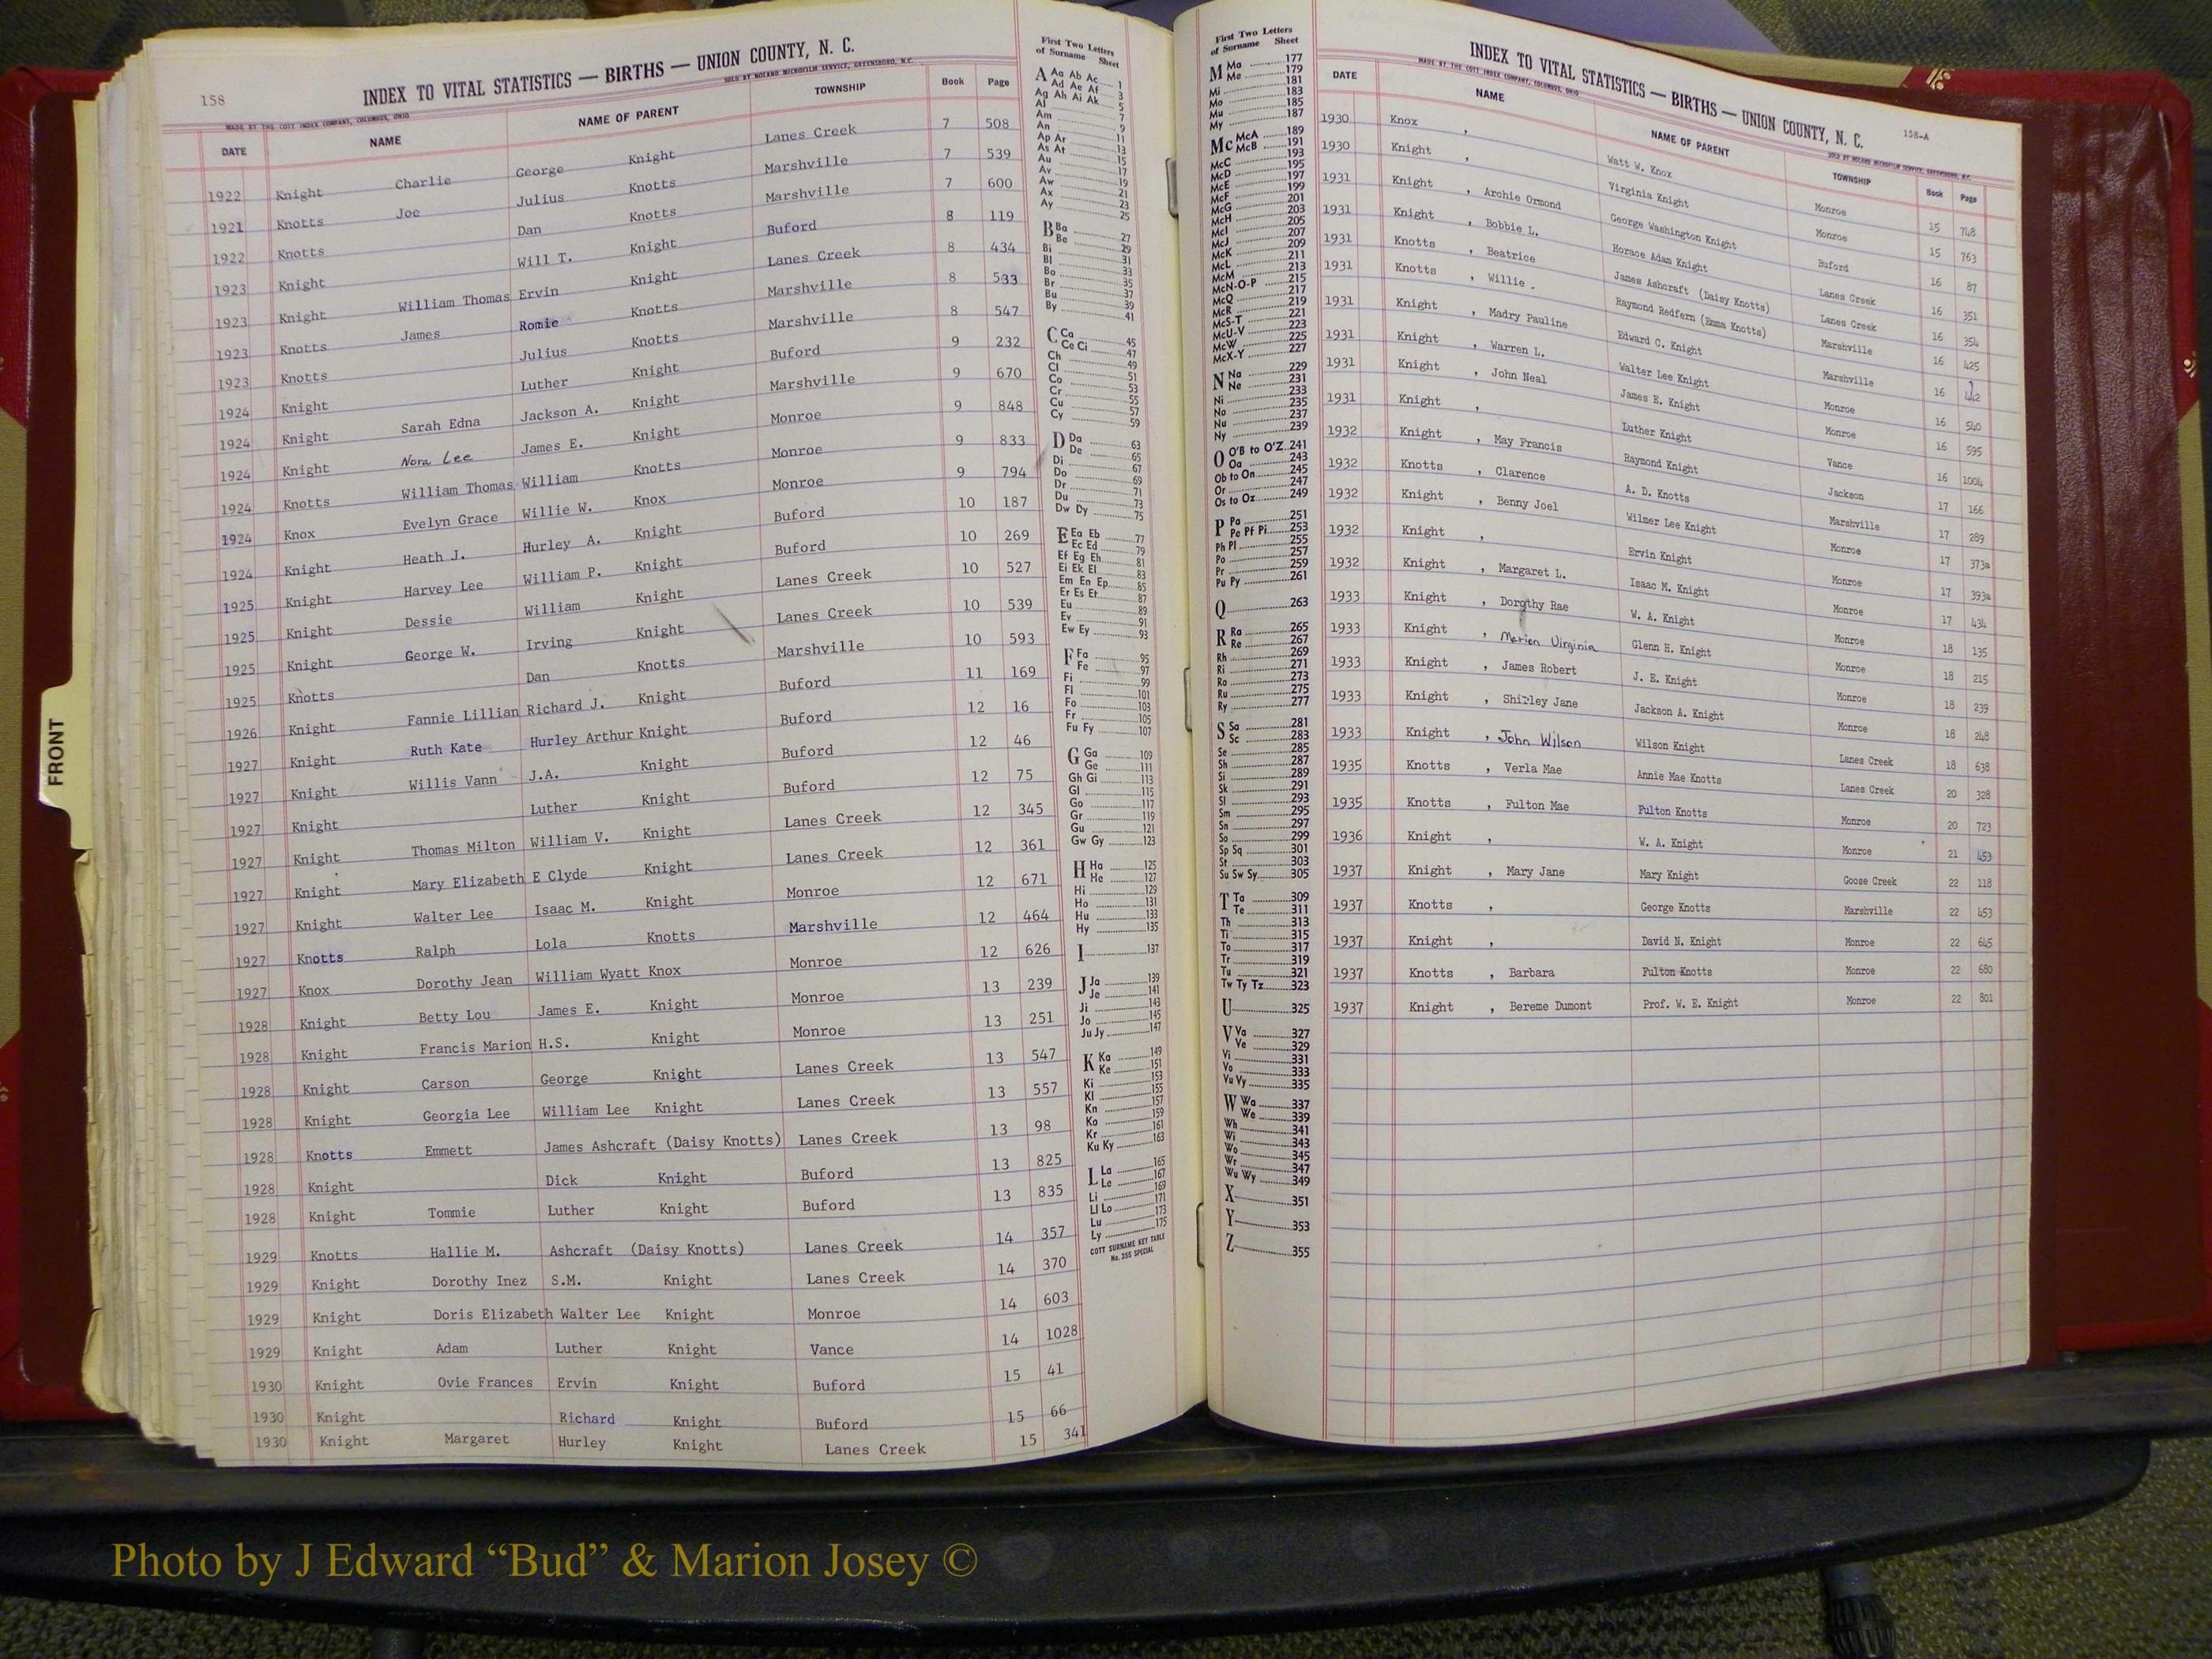 158
INDEX TO VITAL STATISTICS — BIRTHS — UNION COUNTY, N. C.
MADE BY THE COTT INDEX COMPANY, COLUMBUS, OHIO SOLD BY NOLAND MICROFILM SERVICE, GREENSBORO, N.C.
DATE NAME NAME OF PARENT TOWNSHIP Book Page
1922 Knight Charlie George Knight Lanes Creek 7 508
1921 Knotts Joe Julius Knotts Marshville 7 539
1922 Knotts Dan Knotts Marshville 7 600
1923 Knight Will T. Knight Buford 8 119
1923 Knight William Thomas Ervin Knight Lanes Creek 8 434
1923 Knotts James Romie Knotts Marshville 8 533
1923 Knotts Julius Knotts Marshville 8 547
1924 Knight Luther Knight Buford 9 232
1924 Knight Sarah Edna Jackson A. Knight Marshville 9 670
1924 Knight Nora Lee James E. Knight Monroe 9 848
1924 Knotts William Thomas William Knotts Monroe 9 833
1924 Knox Evelyn Grace Willie W. Knox Monroe 9 794
1924 Knight Heath J. Hurley A. Knight Buford 10 187
1925 Knight Harvey Lee William P. Knight Buford 10 269
1925 Knight Dessie William Knight Lanes Creek 10 527
1925 Knight George W. Irving Knight Lanes Creek 10 539
1925 Knotts Dan Knotts Marshville 10 593
1926 Knight Fannie Lillian Richard J. Knight Buford 11 169
1927 Knight Ruth Kate Hurley Arthur Knight Buford 12 16
1927 Knight Willis Vann J.A. Knight Buford 12 46
1927 Knight Luther Knight Buford 12 75
1927 Knight Thomas Milton William V. Knight Lanes Creek 12 345
1927 Knight Mary Elizabeth E Clyde Knight Lanes Creek 12 361
1927 Knight Walter Lee Isaac M. Knight Monroe 12 671
1927 Knotts Ralph Lola Knotts Marshville 12 464
1927 Knox Dorothy Jean William Wyatt Knox Monroe 12 626
1928 Knight Betty Lou James E. Knight Monroe 13 239
1928 Knight Francis Marion H.S. Knight Monroe 13 251
1928 Knight Carson George Knight Lanes Creek 13 547
1928 Knight Georgia Lee William Lee Knight Lanes Creek 13 557
1928 Knotts Emmett James Ashcraft (Daisy Knotts) Lanes Creek 13 98
1928 Knight Dick Knight Buford 13 825
1928 Knight Tommie Luther Knight Buford 13 835
1929 Knotts Hallie M. Ashcraft (Daisy Knotts) Lanes Creek 14 357
1929 Knight Dorothy Inez S.M. Knight Lanes Creek 14 370
1929 Knight Doris Elizabeth Walter Lee Knight Monroe 14 603
1929 Knight Adam Luther Knight Vance 14 1028
1930 Knight Ovie Frances Ervin Knight Buford 15 41
1930 Knight Richard Knight Buford 15 66
1930 Knight Margaret Hurley Knight Lanes Creek 15 341
First Two Letters
of Surname Sheet
A Aa Ab Ac 1
Ad Ae Af 3
Ag Ah Ai Ak 5
Al 7
Am 9
An 11
Ap Ar 13
As At 15
Au 17
Av 19
Aw 21
Ax 23
Ay 25
B Ba 27
Be 29
Bi 31
Bl 33
Bo 35
Br 37
Bu 39
By 41
C Ca 45
Ce Ci 47
Ch 49
Cl 51
Co 53
Cr 55
Cu 57
Cy 59
D Da 63
De 65
Di 67
Do 69
Dr 71
Du 73
Dw Dy 75
E Ea Eb 77
Ec Ed 79
Ef Eg Eh 81
Ei Ek El 83
Em En Ep 85
Er Es Et 87
Eu 89
Ev 91
Ew Ey 93
F Fa 95
Fe 97
Fi 99
Fl 101
Fo 103
Fr 105
Fu Fy 107
G Ga 109
Ge 111
Gh Gi 113
Gl 115
Go 117
Gr 119
Gu 121
Gw Gy 123
H Ha 125
He 127
Hi 129
Ho 131
Hu 133
Hy 135
I 137
J Ja 139
Je 141
Ji 143
Jo 145
Ju Jy 147
K Ka 149
Ke 151
Ki 153
Kl 155
Kn 157
Ko 159
Kr 161
Ku Ky 163
L La 165
Le 167
Li 169
Ll Lo 171
Lu 173
Ly 175
COTT SURNAME KEY TABLE
No. 355 SPECIAL
First Two Letters
of Surname Sheet
M Ma 177
Me 179
Mi 181
Mo 183
Mu 185
My 187
Mc McA 189
McB 191
McC 193
McD 195
McE 197
McF 199
McG 201
McH 203
McI 205
McJ 207
McK 209
McL 211
McM 213
McN-O-P 215
McQ 217
McR 219
McS-T 221
McU-V 223
McW 225
McX-Y 227
N Na 229
Ne 231
Ni 233
No 235
Nu 237
Ny 239
O O'B to O'Z 241
Oa 243
Ob to On 245
Or 247
Os to Oz 249
P Pa 251
Pe Pf Pi 253
Ph Pl 255
Po 257
Pr 259
Pu Py 261
Q 263
R Ra 265
Re 267
Rh 269
Ri 271
Ro 273
Ru 275
Ry 277
S Sa 281
Sc 283
Se 285
Sh 287
Si 289
Sk 291
Sl 293
Sm 295
Sn 297
So 299
Sp Sq 301
St 303
Su Sw Sy 305
T Ta 309
Te 311
Th 313
Ti 315
To 317
Tr 319
Tu 321
Tw Ty Tz 323
U 325
V Va 327
Ve 329
Vi 331
Vo 333
Vu Vy 335
W Wa 337
We 339
Wh 341
Wi 343
Wo 345
Wr 347
Wu Wy 349
X 351
Y 353
Z 355
INDEX TO VITAL STATISTICS — BIRTHS — UNION COUNTY, N. C. 158-A
MADE BY THE COTT INDEX COMPANY, COLUMBUS, OHIO SOLD BY NOLAND MICROFILM SERVICE, GREENSBORO, N.C.
DATE NAME NAME OF PARENT TOWNSHIP Book Page
1930 Knox , Watt W. Knox Monroe 15 748
1930 Knight , Virginia Knight Monroe 15 763
1931 Knight , Archie Ormond George Washington Knight Buford 16 87
1931 Knight , Bobbie L. Horace Adam Knight Lanes Creek 16 351
1931 Knotts , Beatrice James Ashcraft (Daisy Knotts) Lanes Creek 16 354
1931 Knotts , Willie . Raymond Redfern (Emma Knotts) Marshville 16 425
1931 Knight , Madry Pauline Edward C. Knight Marshville 16
1931 Knight , Warren L. Walter Lee Knight Monroe 16 540
1931 Knight , John Neal James E. Knight Monroe 16 595
1931 Knight , Luther Knight Vance 16 1004
1932 Knight , May Francis Raymond Knight Jackson 17 166
1932 Knotts , Clarence A. D. Knotts Marshville 17 289
1932 Knight , Benny Joel Wilmer Lee Knight Monroe 17 373a
1932 Knight , Ervin Knight Monroe 17 393a
1932 Knight , Margaret L. Isaac M. Knight Monroe 17 434
1933 Knight , Dorothy Rae W. A. Knight Monroe 18 135
1933 Knight , Marion Virginia Glenn H. Knight Monroe 18 215
1933 Knight , James Robert J. E. Knight Monroe 18 239
1933 Knight , Shirley Jane Jackson A. Knight Monroe 18 248
1933 Knight , John Wilson Wilson Knight Lanes Creek 18 638
1935 Knotts , Verla Mae Annie Mae Knotts Lanes Creek 20 328
1935 Knotts , Fulton Mae Fulton Knotts Monroe 20 723
1936 Knight , W. A. Knight Monroe 21 453
1937 Knight , Mary Jane Mary Knight Goose Creek 22 118
1937 Knotts , George Knotts Marshville 22 453
1937 Knight , David N. Knight Monroe 22 645
1937 Knotts , Barbara Fulton Knotts Monroe 22 680
1937 Knight , Bereme Dumont Prof. W. E. Knight Monroe 22 801
FRONT
Photo by J Edward “Bud” & Marion Josey ©